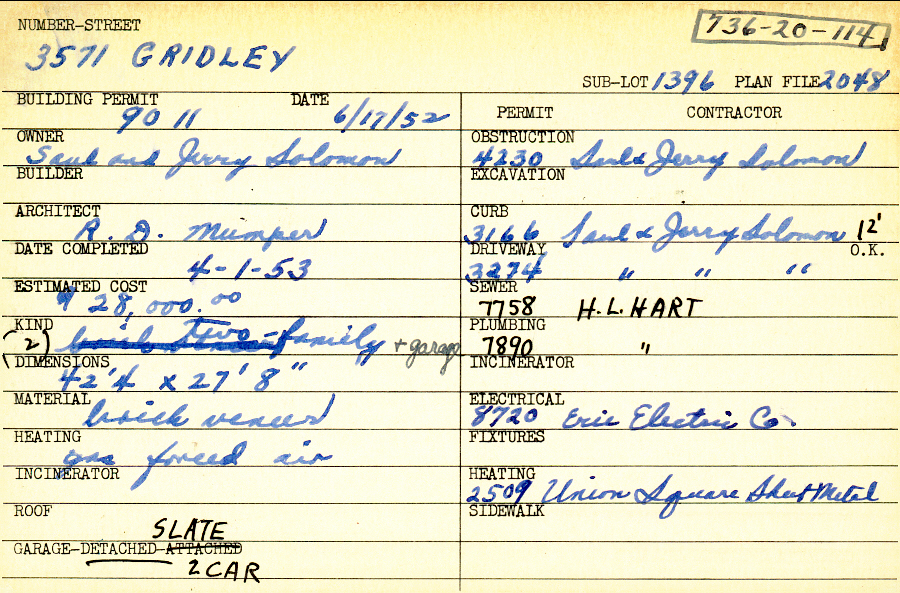 NUMBER-STREET
736-20-114
3571 GRIDLEY
SUB-LOT 1396 PLAN FILE 2048
BUILDING PERMIT DATE
9011 6/17/52
OWNER
Saul and Jerry Solomon
BUILDER
ARCHITECT
R. D. Mumper
DATE COMPLETED
4-1-53
ESTIMATED COST
$ 28,000.00
KIND
(2) two-family + garage
DIMENSIONS
42'4 x 27'8"
MATERIAL
brick veneer
HEATING
gas forced air
INCINERATOR
ROOF
SLATE
GARAGE-DETACHED-ATTACHED
2 CAR
PERMIT CONTRACTOR
OBSTRUCTION
4230 Saul & Jerry Solomon
EXCAVATION
CURB
3166 Saul & Jerry Solomon 12'
DRIVEWAY O.K.
3274 " " "
SEWER
7758 H.L.HART
PLUMBING
7890 "
INCINERATOR
ELECTRICAL
8720 Eric Electric Co.
FIXTURES
HEATING
2509 Union Square Sheet Metal
SIDEWALK